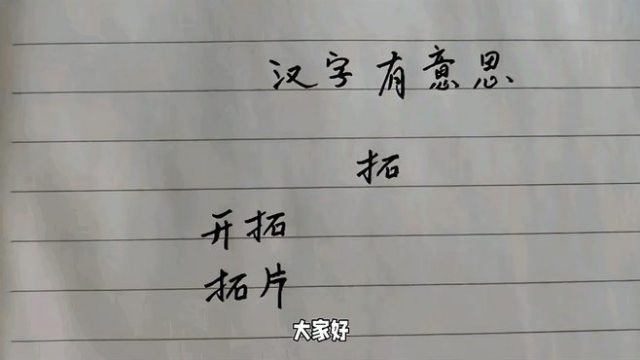 汉字有意思
拓
开拓
拓片
大家好